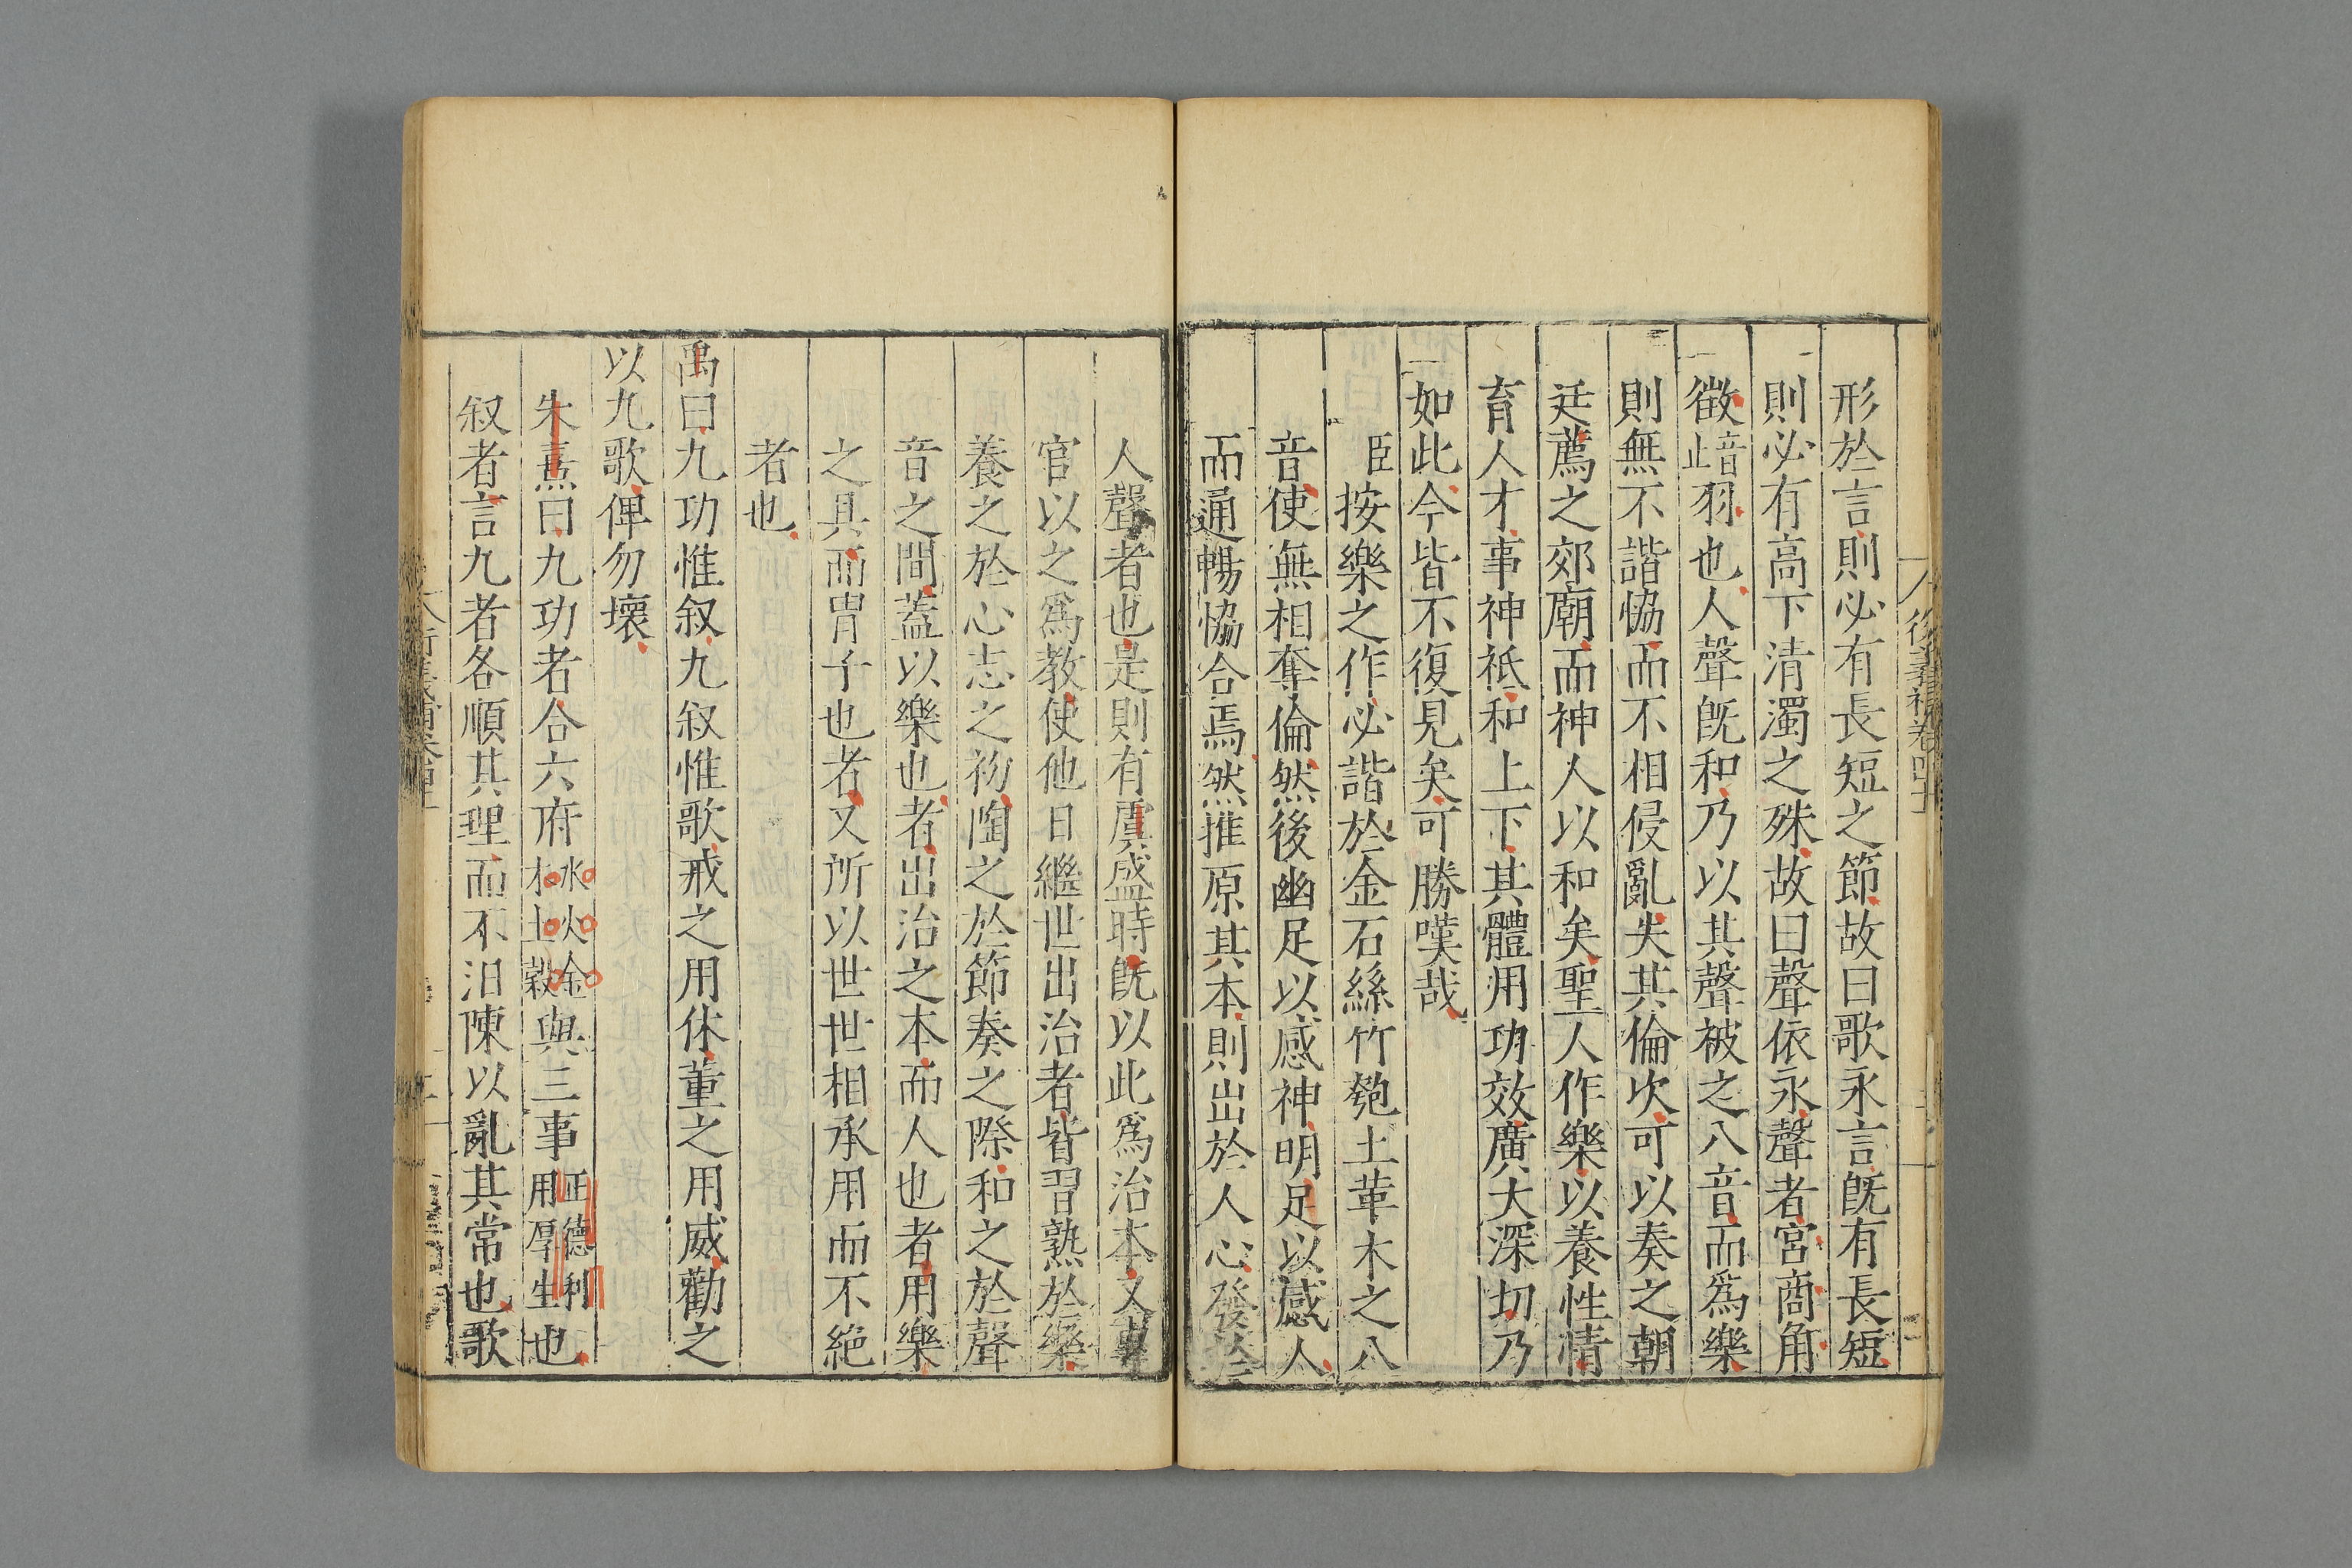 形於言則必有長短之節故曰歌永言旣有長短
則必有高下清濁之殊故曰聲依永聲者宮商角
徵音止羽也人聲旣和乃以其聲被之八音而爲樂
則無不諧恊而不相侵亂失其倫次可以奏之朝
廷薦之郊廟而神人以和矣聖人作樂以養性情
育人才事神祇和上下其體用功效廣大深切乃
如此今皆不復見矣可勝嘆哉
臣按樂之作必諧於金石絲竹匏土革木之八
音使無相奪倫然後幽足以感神明足以感人
而通暢恊合焉然推原其本則出於人心發於
人聲者也是則有虞盛時旣以此爲治本又專
官以之爲敎使他日繼世出治者皆習熟於樂
養之於心志之初陶之於節奏之際和之於聲
音之間蓋以樂也者出治之本而人也者用樂
之具而冑子也者又所以世世相承用而不絶
者也
禹曰九功惟叙九叙惟歌戒之用休董之用威勸之
以九歌俾勿壞
朱熹曰九功者合六府水火金木土穀與三事正德利用厚生也
叙者言九者各順其理而不汨陳以亂其常也歌